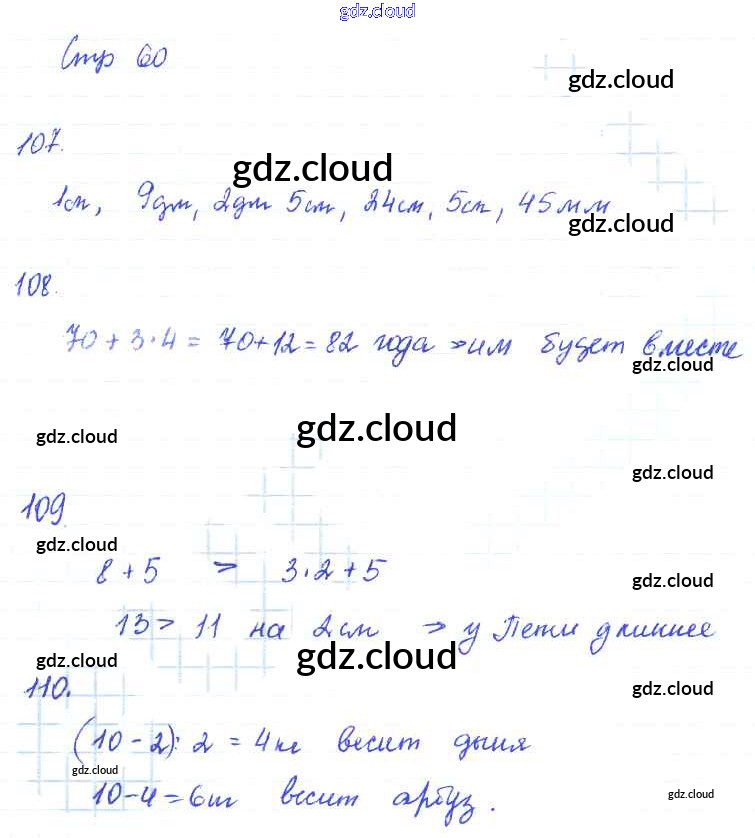 gdz.cloud
Стр 60
gdz.cloud
107.
gdz.cloud
1см, 9дм, 2дм 5см, 24см, 5см, 45мм
gdz.cloud
108.
70 + 3·4 = 70+12 = 82 года → им будет вместе
gdz.cloud
gdz.cloud
gdz.cloud
gdz.cloud
109.
gdz.cloud
8 + 5 > 3·2 + 5
gdz.cloud
13 > 11 на 2 см → у Пети длиннее
gdz.cloud
gdz.cloud
110.
gdz.cloud
(10 - 2) : 2 = 4 кг весит дыня
gdz.cloud
10 - 4 = 6 кг весит арбуз.
gdz.cloud